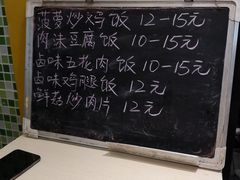 菠萝炒鸡饭 12-15元
肉沫豆腐饭 10-15元
卤味五花肉饭 10-15元
卤味鸡腿饭 12元
鲜菇炒肉片 12元